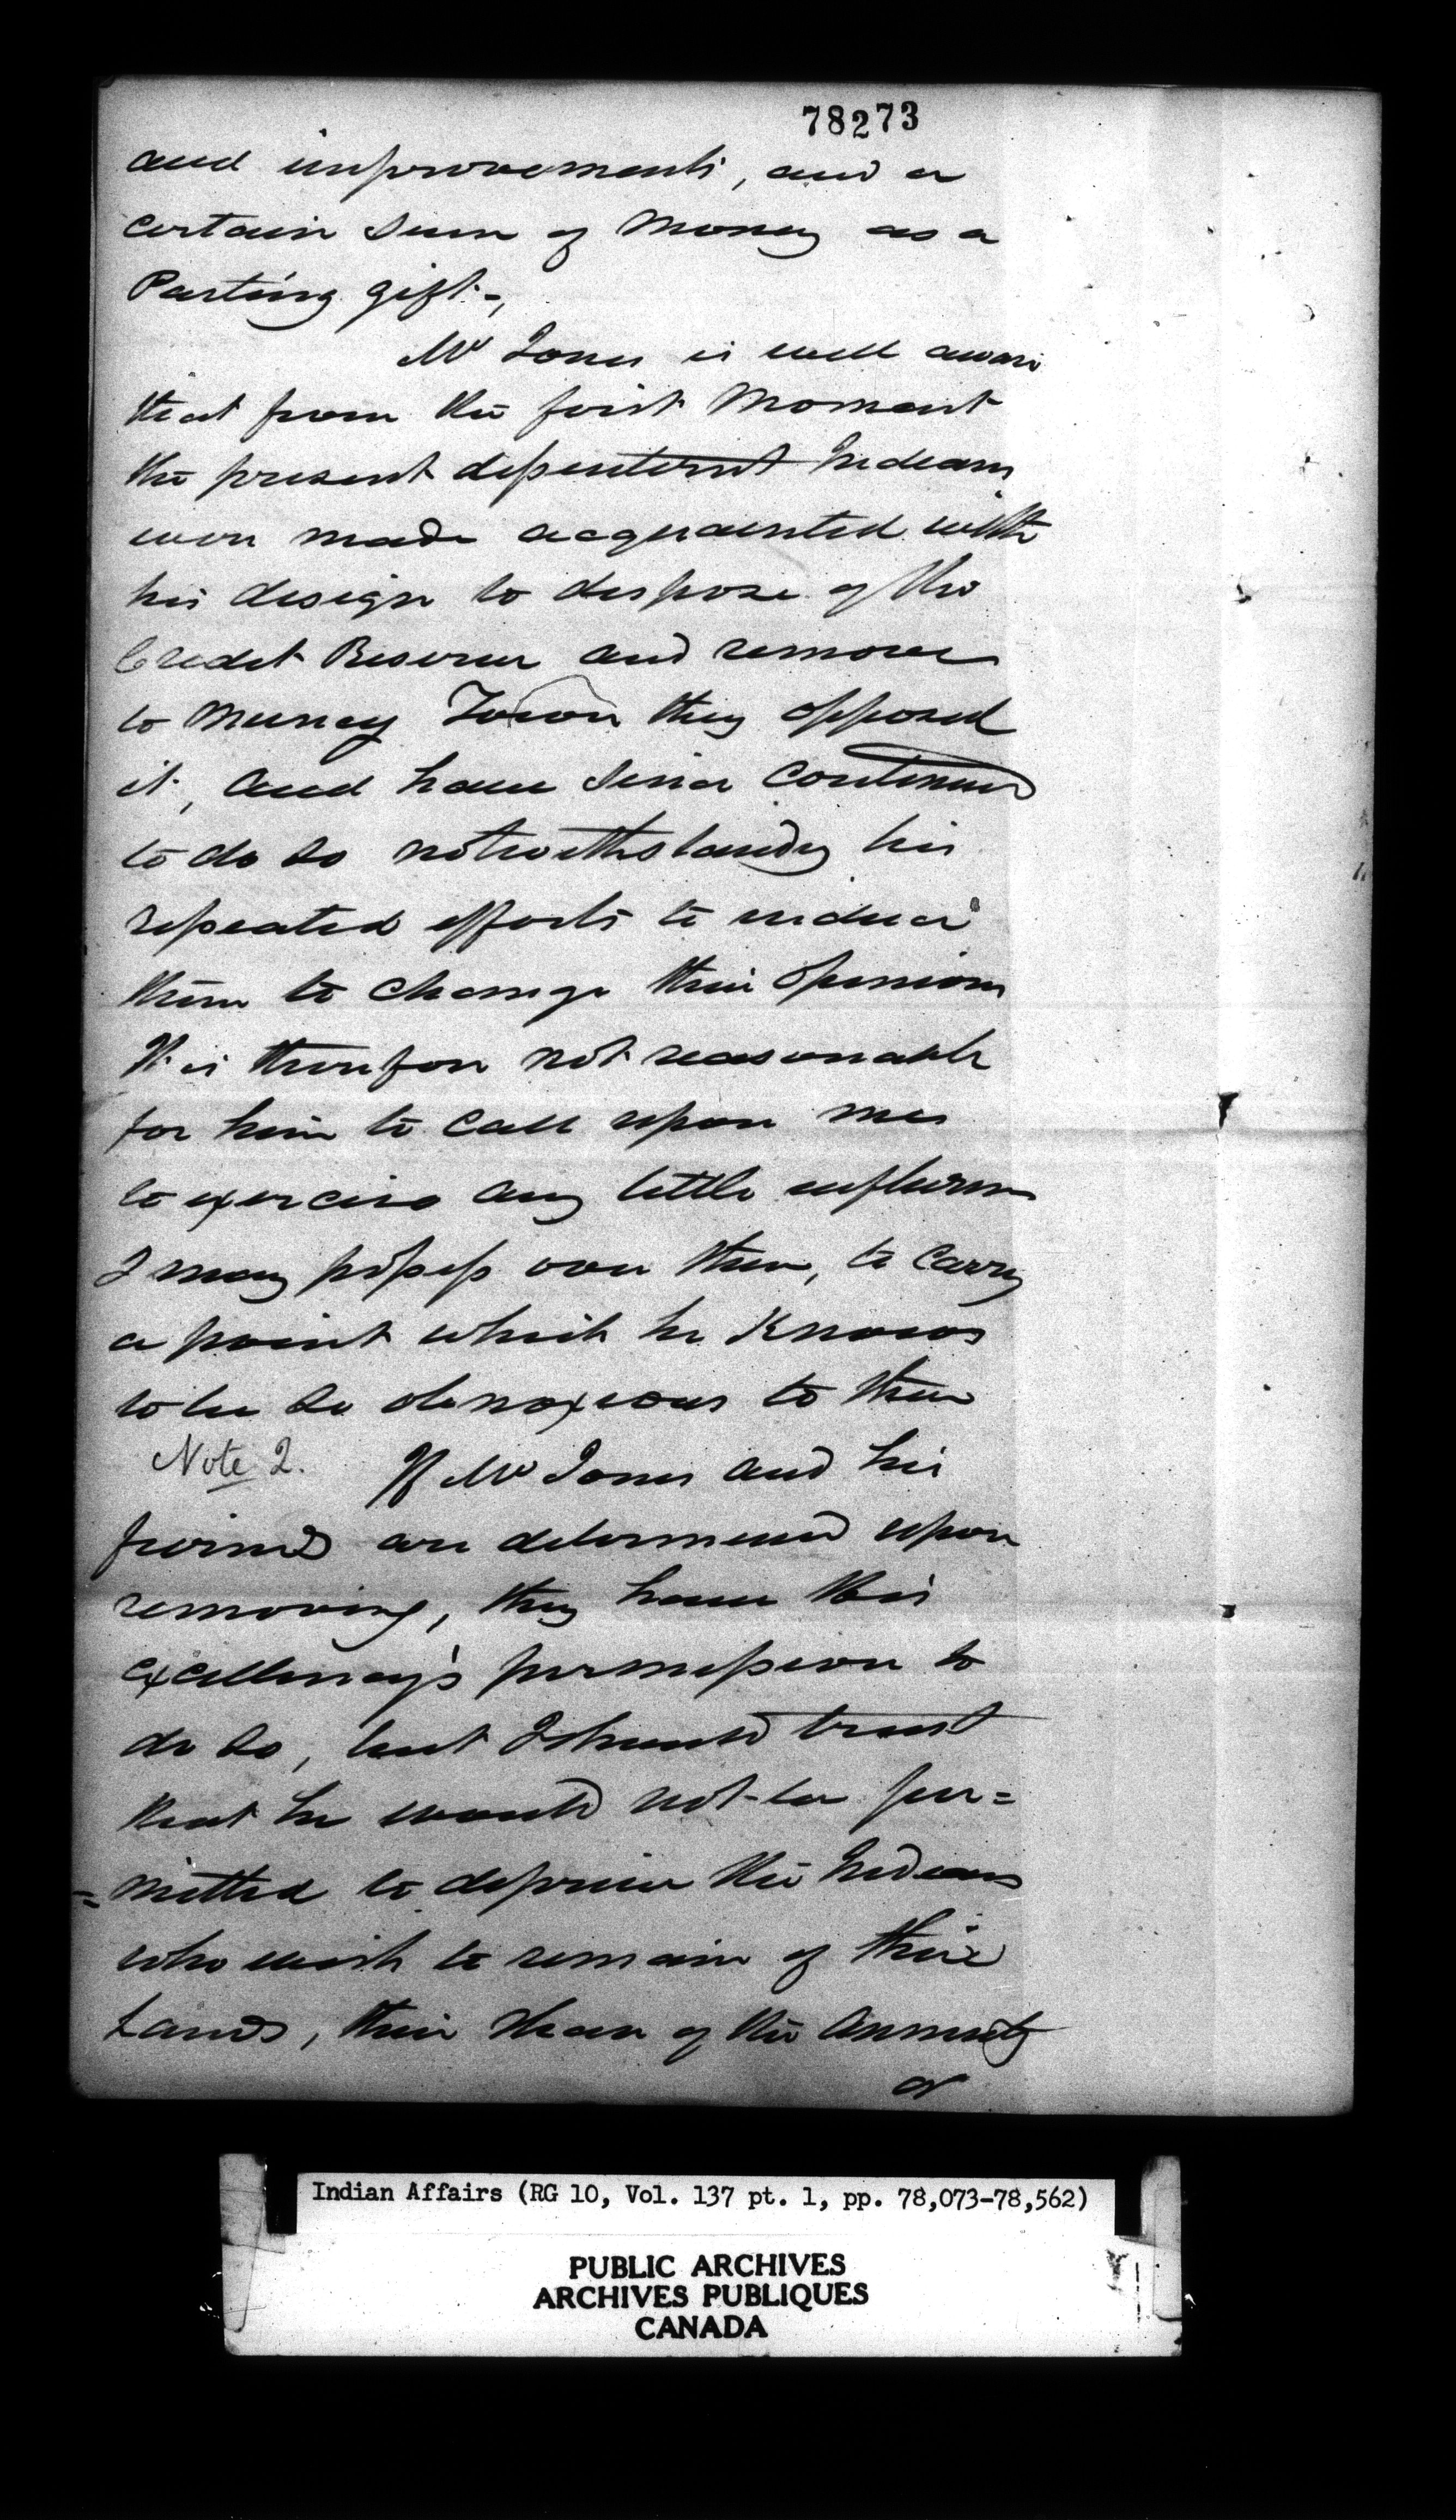 78273
and improvements, and a
certain sum of money as a
Parting gift.,
Mr Jones is well aware
that from the first moment
the present dissentient Indians
were made acquainted with
his design to dispose of the
Credit Reserve and remove
to Muncey Town they opposed
it, and have since continued
to do so notwithstanding his
repeated efforts to induce
them to change their opinions
It is therefore not reasonable
for him to call upon me
to exercise any little influence
I may possess over them, to carry
a point which he knows
to be so obnoxious to them
Note 2. If Mr Jones and his
friends are determined upon
removing, they have His
Excellency's permission to
do so, but I should trust
that he would not be per=
=mitted to deprive the Indians
who wish to remain of their
Lands, their share of the annuity
or
Indian Affairs (RG 10, Vol. 137 pt. 1, pp. 78,073-78,562)
PUBLIC ARCHIVES
ARCHIVES PUBLIQUES
CANADA